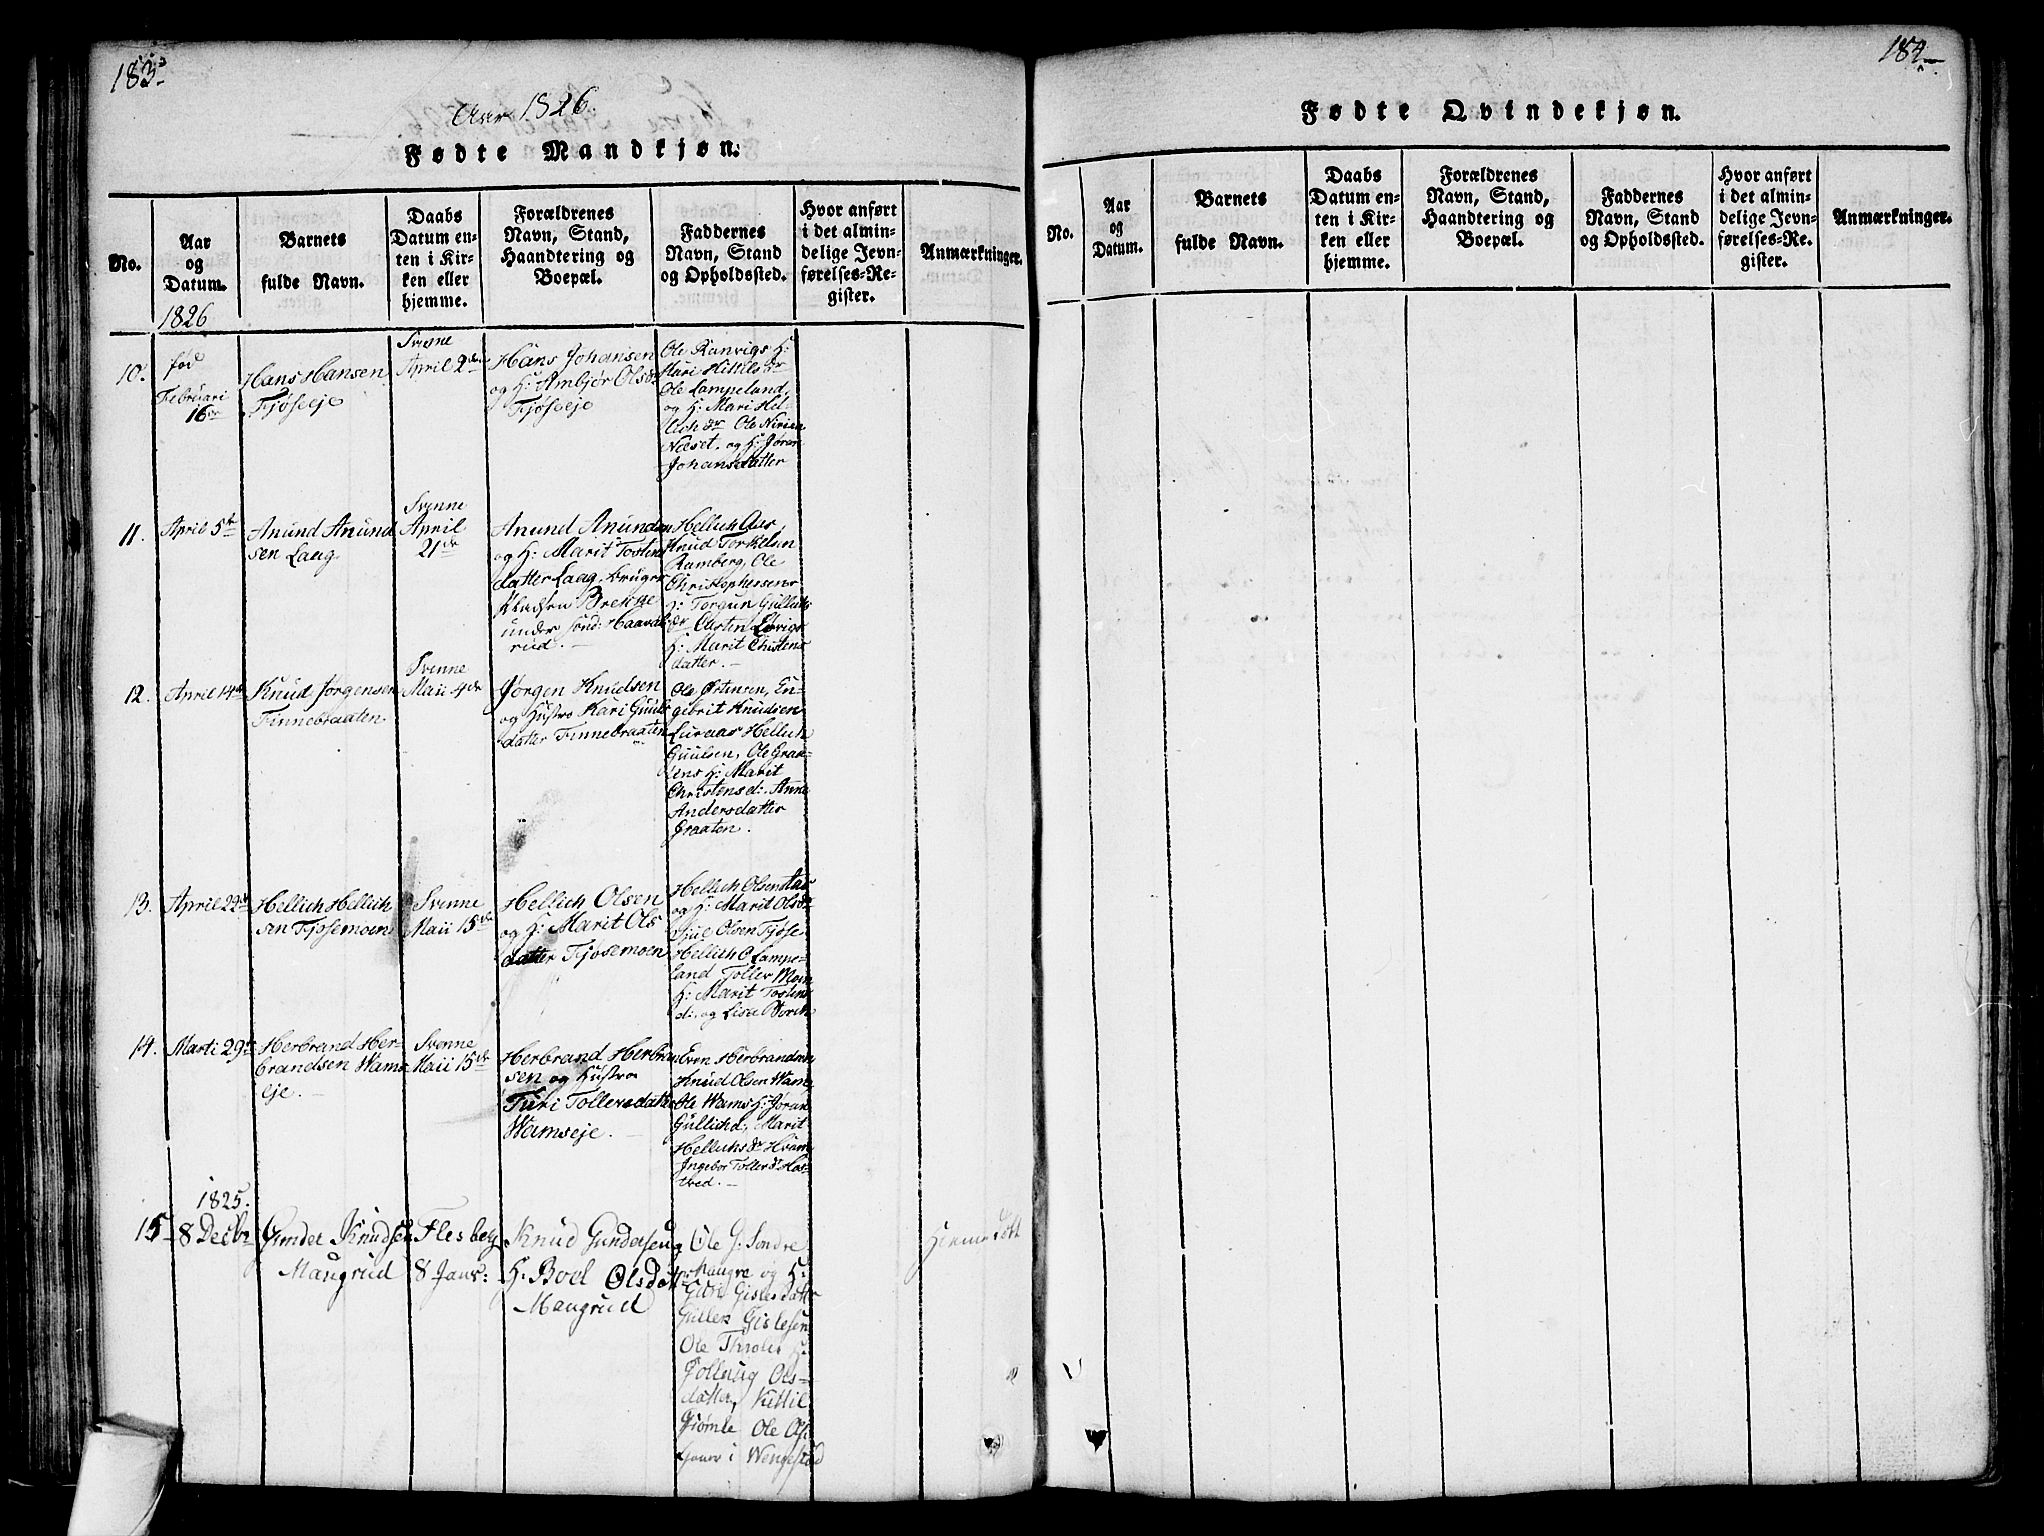 183
Aar 1826.
Fødte Mandkjøn.
No.
Aar
og
Datum.
Barnets
fulde Navn.
Daabs
Datum en-
ten i Kir-
ken eller
hjemme.
Forældrenes
Navn, Stand,
Haandtering og
Boepæl.
Faddernes
Navn, Stand
og Opholdssted.
Hvor anført
i det almin-
delige Jevn-
førelses-Re-
gister.
Anmærkninger.
1826
10.
fød
Februari
16de
Hans Hansen
Fjöseeje
Svenne
April 2den
Hans Johansen
og H: Ambjör Olsdr
Fjöseeje
Ole Ranvigs H:
Kari Kittilsdr
Ole Lampeland,
og H: Mari Hel-
lichdr Ole
Næset, og H: Jöran
Johansdatter
11.
April 5te
Anund Anund
sen Laag.
Svenne
April
21de
Anund Anundsen
og H: Marit Tostens
datter Laag, bruger
Pladsen Brekke
under sönd: Haavals
rud.
Hellich Aas,
Knud Torkelsen
Ramberg, Ole
Christophersens
H: Torgun Gullichs
dr
H: Marit Christens
datter.
12.
April 14de
Knud Jörgensen
Finnebraaten
Svenne
Maii 4de
Jörgen Knudsen
og Hustro Kari Guuls
datter Finnebraaten
Ole Östensen, En-
gebrit Knudsen
Luraas Hellich
Guulsen, Ole Braa-
tens H: Marit
Christensd: Anne
Andersdatter
Braaten.
13.
April 22de
Hellich Hellich
sen Fjosemoen
Svenne
Maii 15de
Hellich Olsen
og H: Marit Ols
datter Fjosemoen
Hellich Olsen Aas
og H: Marit Olsdr
Juul Olsen Fjöse
Hellich O. Lampe-
land Toller Moen
H: Marit Tostens
d: og Lisa
14.
Marti 29de
Herbrand Her-
brandsen Wams
eje.
Svenne
Maii 15de
Herbrand Herbran
sen og Hustro
Turi Tollersdatter
Wamseje.
Even Herbrandsen
Knud Olsen Wams
Ole Wams H: Jöran
Gullichd: Marit
Hellichsdr Hvam
Ingebor Tollersdr Has-
bred.
1825.
15
8 Decbr
Gunder Knudsen
Maugrud
Flesberg
8 Janr:
Knud Gundersen og
H: Boel Olsdatr
Maugrud
Ole G: Söndre
Mangre og H:
Guri Gislesdatter
Gullek Gislesen
Ole Throls H:
Gollaug Ols-
datter, Kittil
Tjömle Ole Ols
Gaars i Wengestad
Hiemedöbt
184
Fødte Qvindekjøn.
No.
Aar
og
Datum.
Barnets
fulde Navn.
Daabs
Datum en-
ten i Kir-
ken eller
hjemme.
Forældrenes
Navn, Stand,
Haandtering og
Boepæl.
Faddernes
Navn, Stand
og Opholdssted.
Hvor anført
i det almin-
delige Jevn-
førelses-Re-
gister.
Anmærkninger.